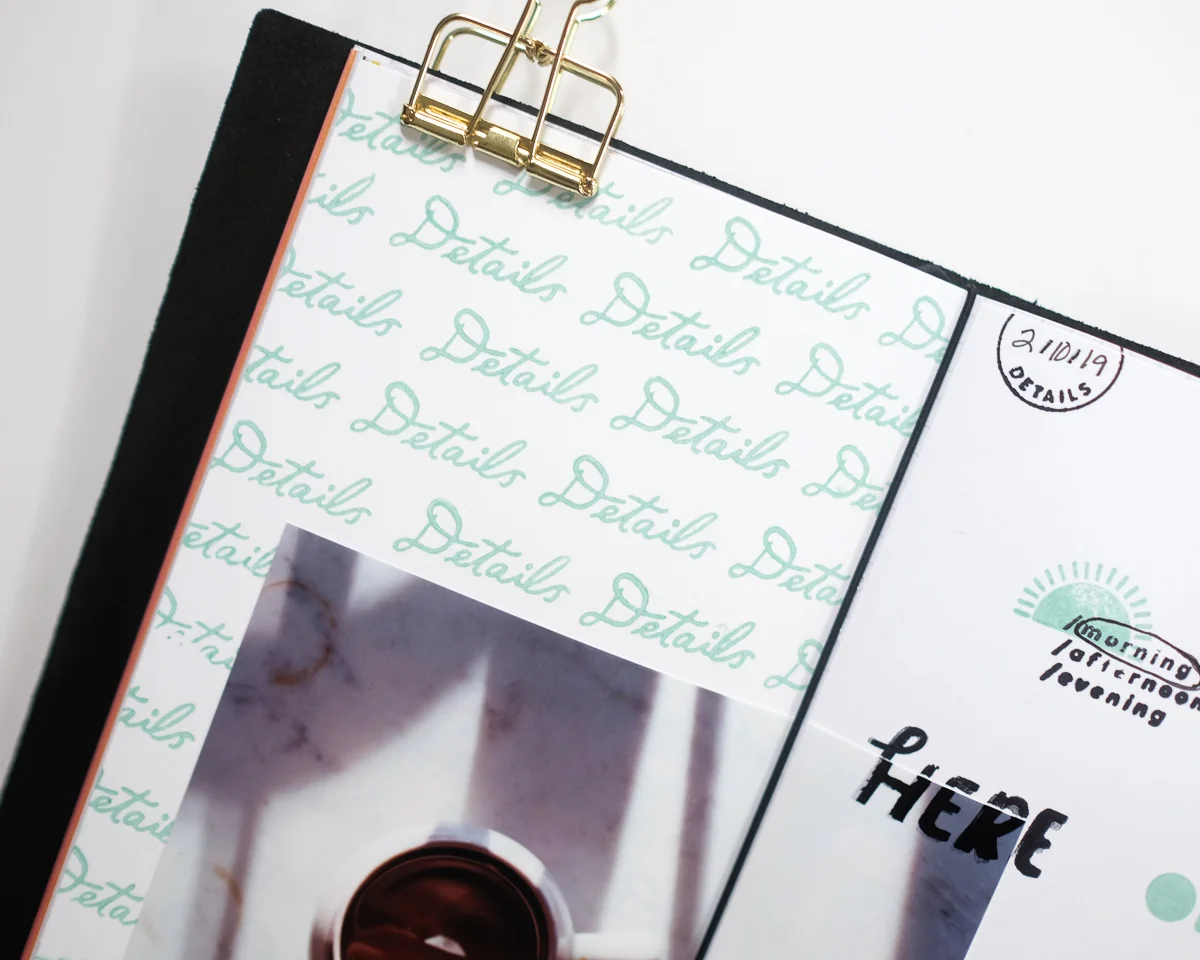 Details Details Details De
ils Details Details Detail
Details Details Details De
tails Details Details Deta
Details Details Details D
etails
Deta
ails
Detail
Deta
21DI19
DETAILS
/morning
/afternoon
/evening
HERE